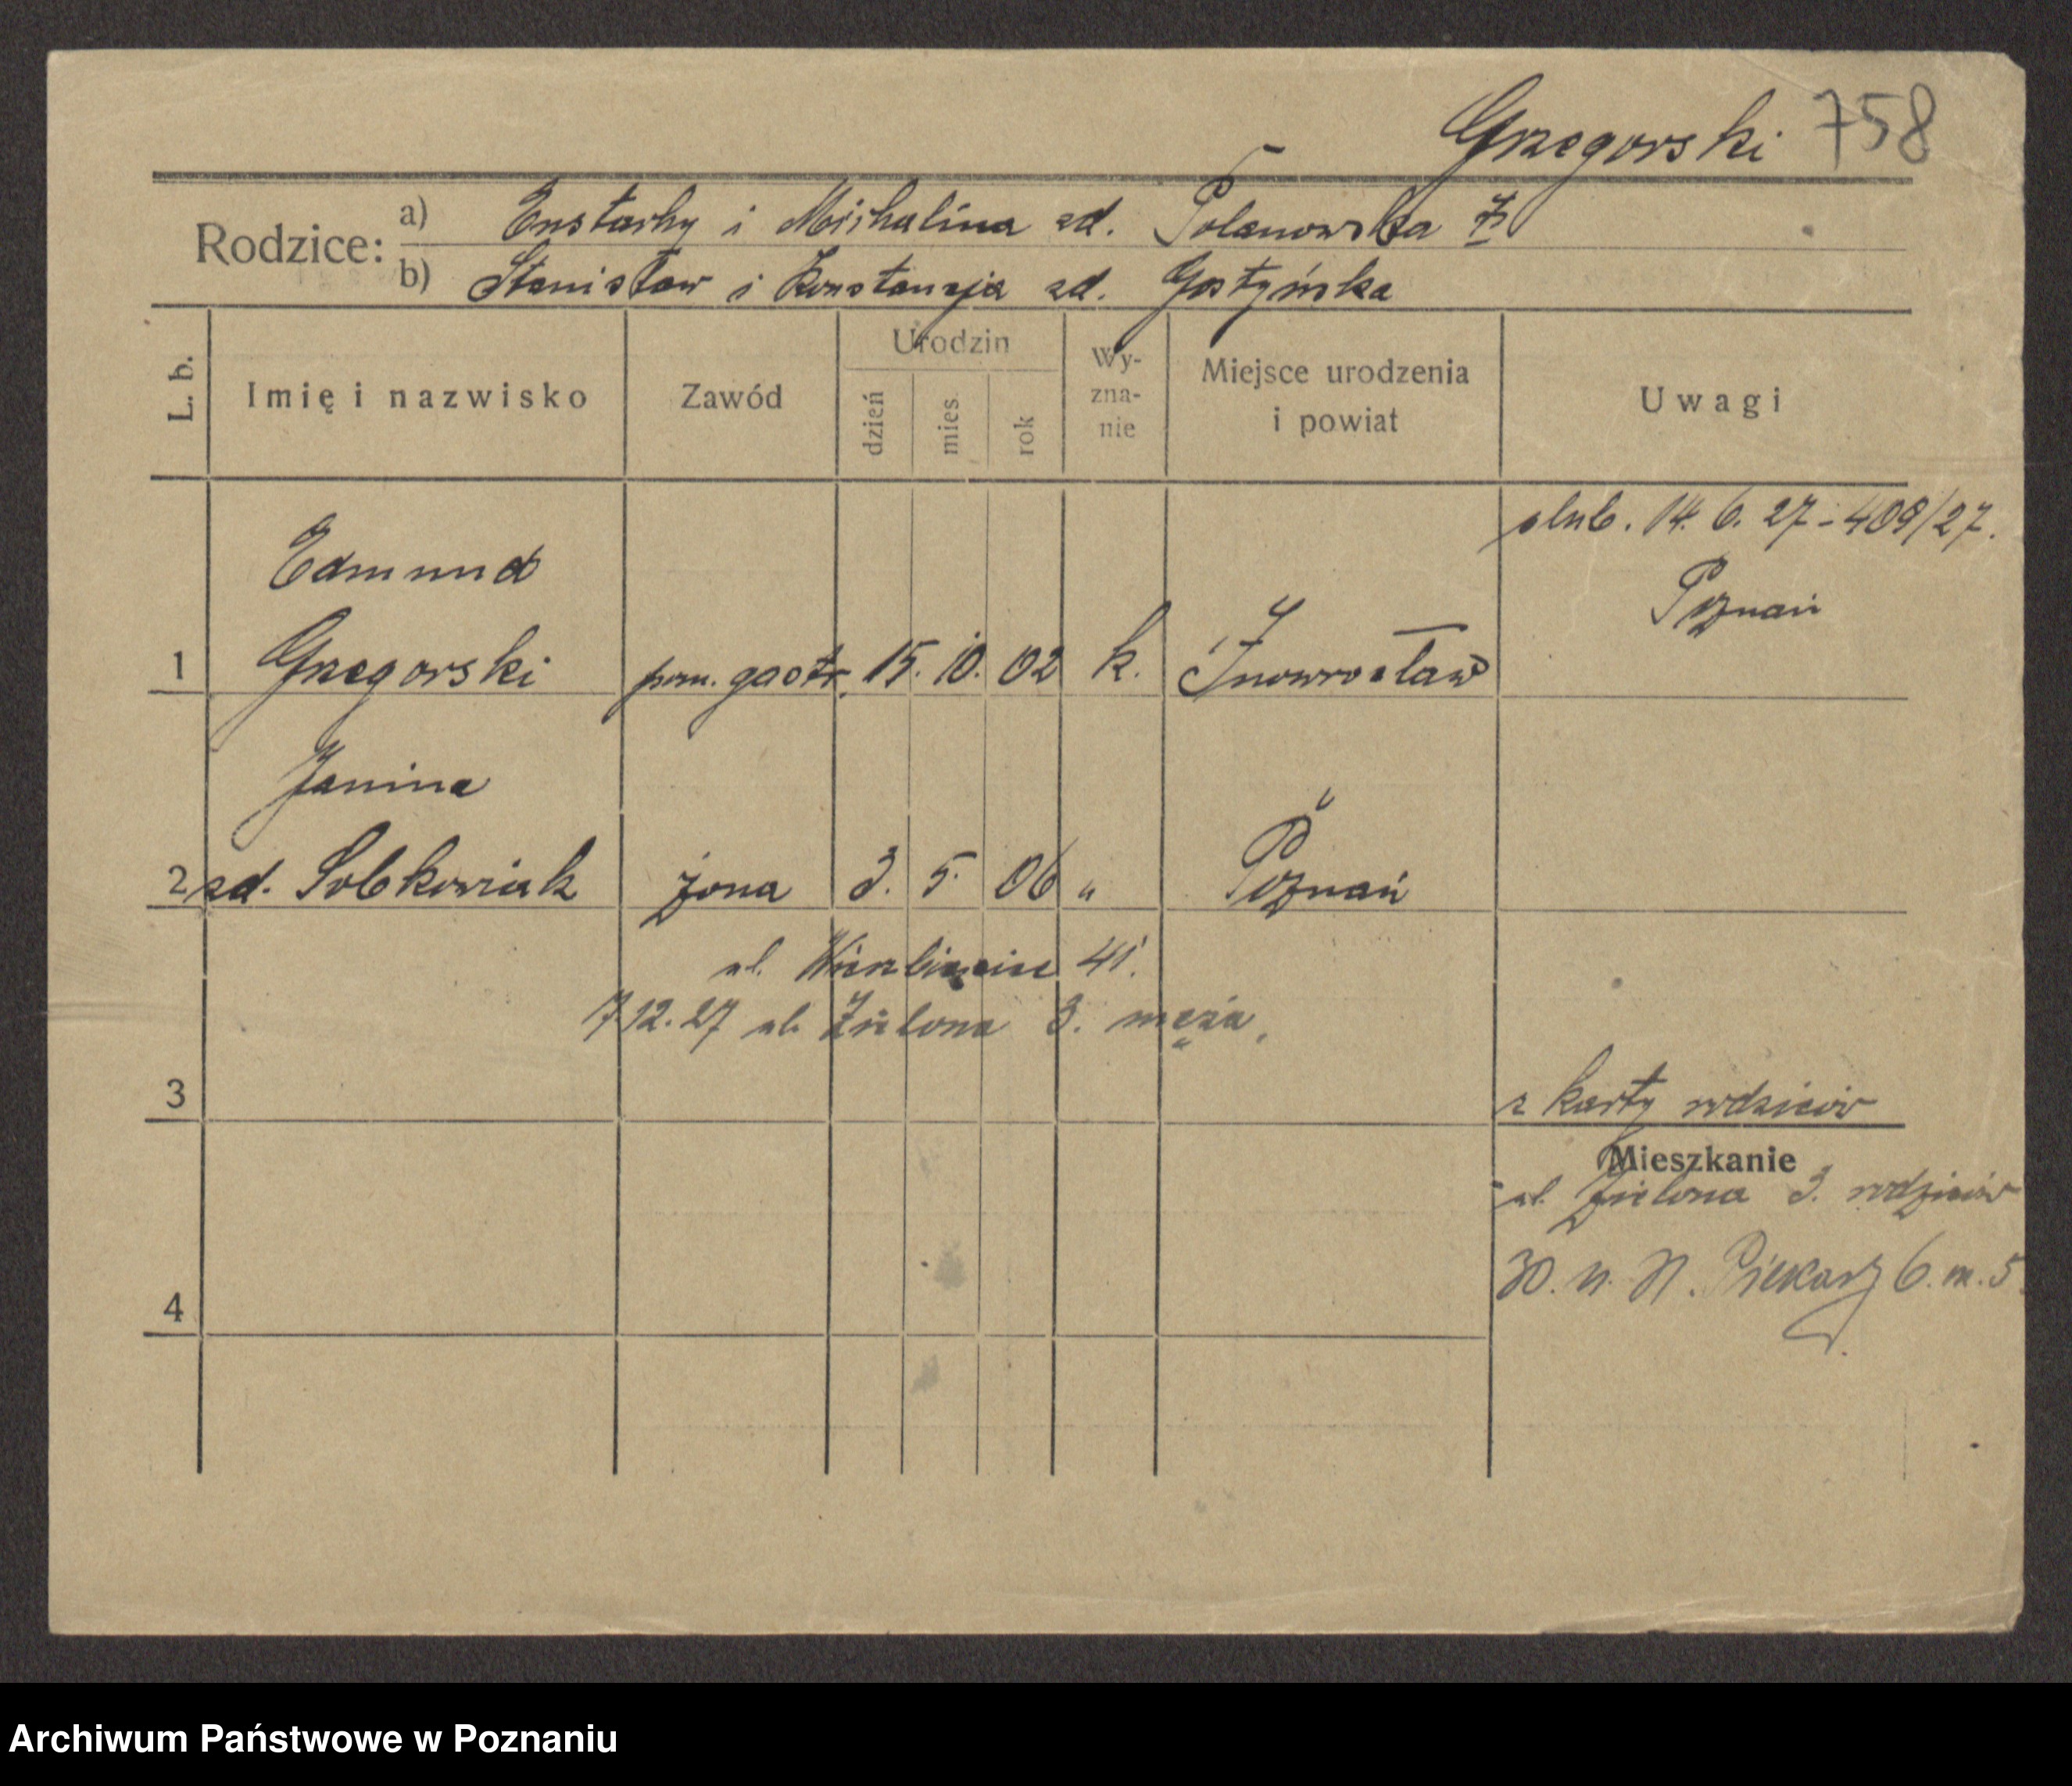 Grzegorski 758
Rodzice:
a) Eustachy i Michalina zd. Polanowska
b) Stanisław i Konstancja zd. Gostyńska
L. b.
Imię i nazwisko
Zawód
Urodzin
dzień
mies.
rok
Wy-
zna-
nie
Miejsce urodzenia
i powiat
Uwagi
ślub. 14. 6. 27 - 409/27.
Poznań
Edmund
1 Grzegorski pom. gastr. 15. 10. 02 k. Inowrocław
Janina
2 zd. Sobkowiak żona 3. 5. 06 " Poznań
ul. Wierzbięcice 41.
7.12.27 ul. Zielona 3. męża.
3
z karty rodziców
Mieszkanie
ul. Zielona 3. rodziców
4
30. Piekary 6. m. 5
Archiwum Państwowe w Poznaniu